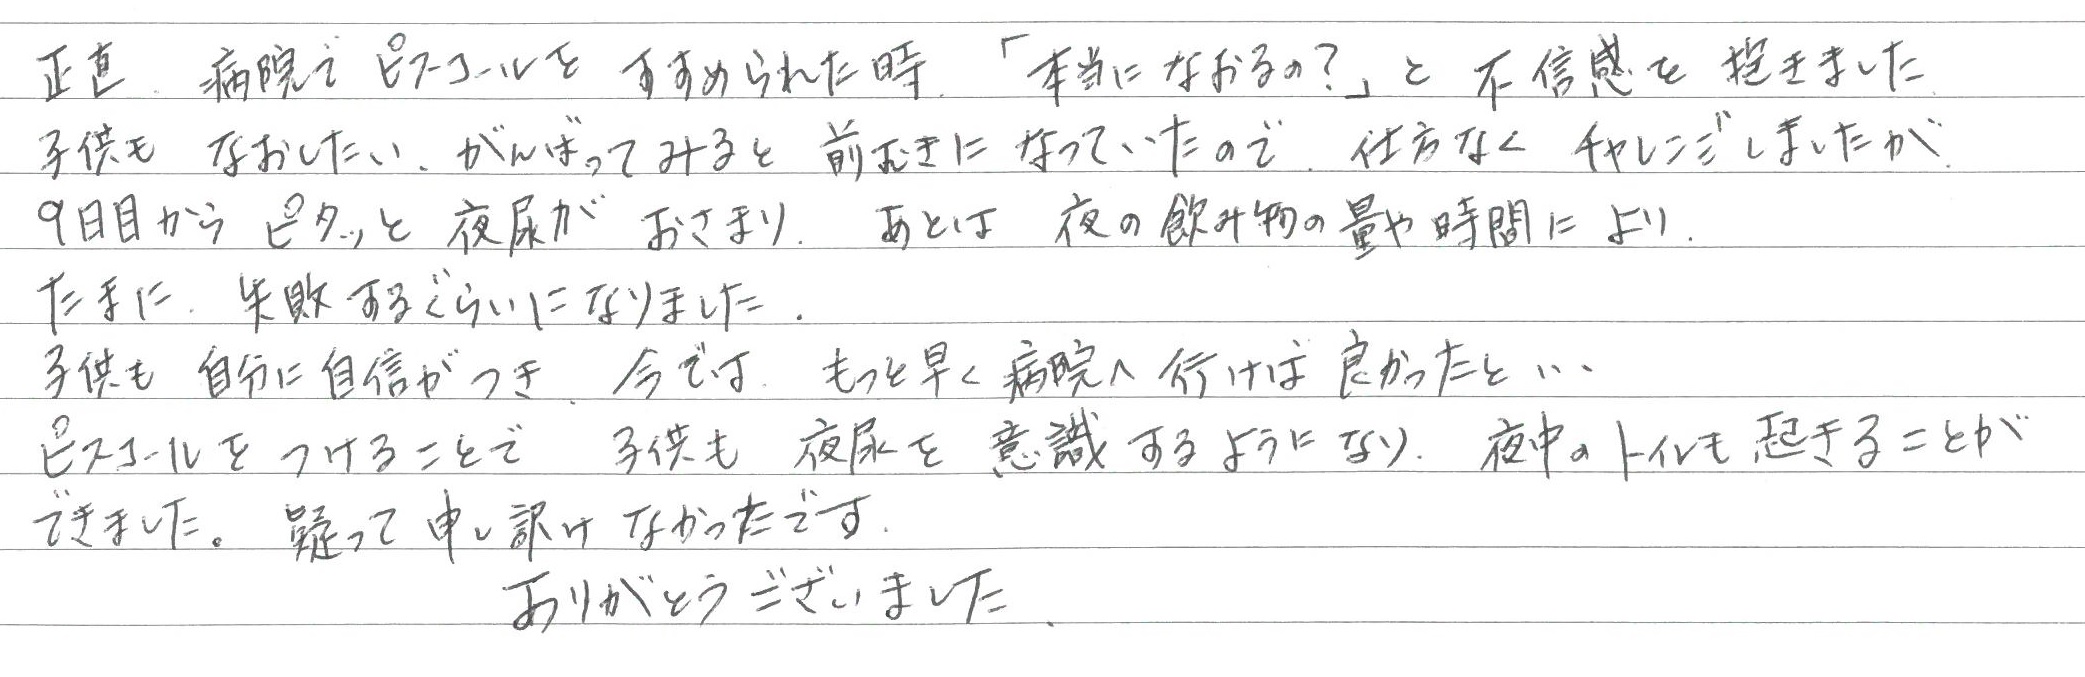 正直、病院でピスコールをすすめられた時、「本当になおるの?」と不信感を抱きました。
子供もなおしたい、がんばってみると前むきになっていたので、仕方なくチャレンジしましたが、
9日目からピタッと夜尿がおさまり、あとは夜の飲み物の量や時間により、
たまに、失敗するぐらいになりました。
子供も自分に自信がつき、今では、もっと早く病院へ行けば良かったと...
ピスコールをつけることで子供も夜尿を意識するようになり、夜中のトイレも起きることが
できました。疑って申し訳けなかったです。
ありがとうございました。